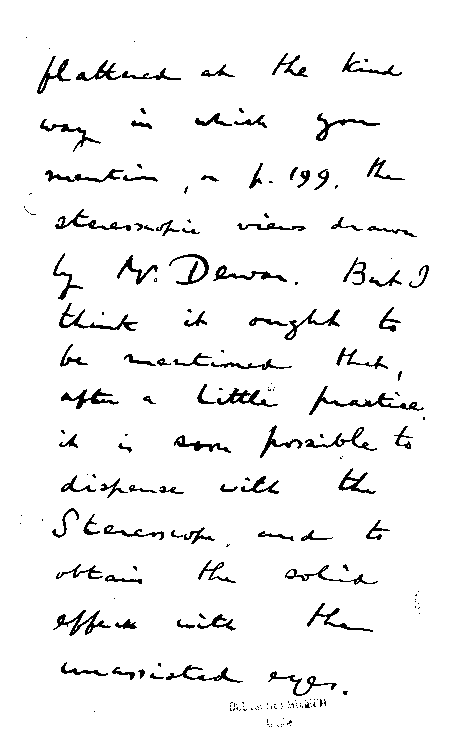 flattered at the kind
way in which you
mention, on p. 199, the
stereoscopic views drawn
by Mr. Dewar. But I
think it ought to
be mentioned that,
after a little practice,
it is soon possible to
dispense with the
Stereoscope, and to
obtain the solid
effect with the
unassisted eyes.